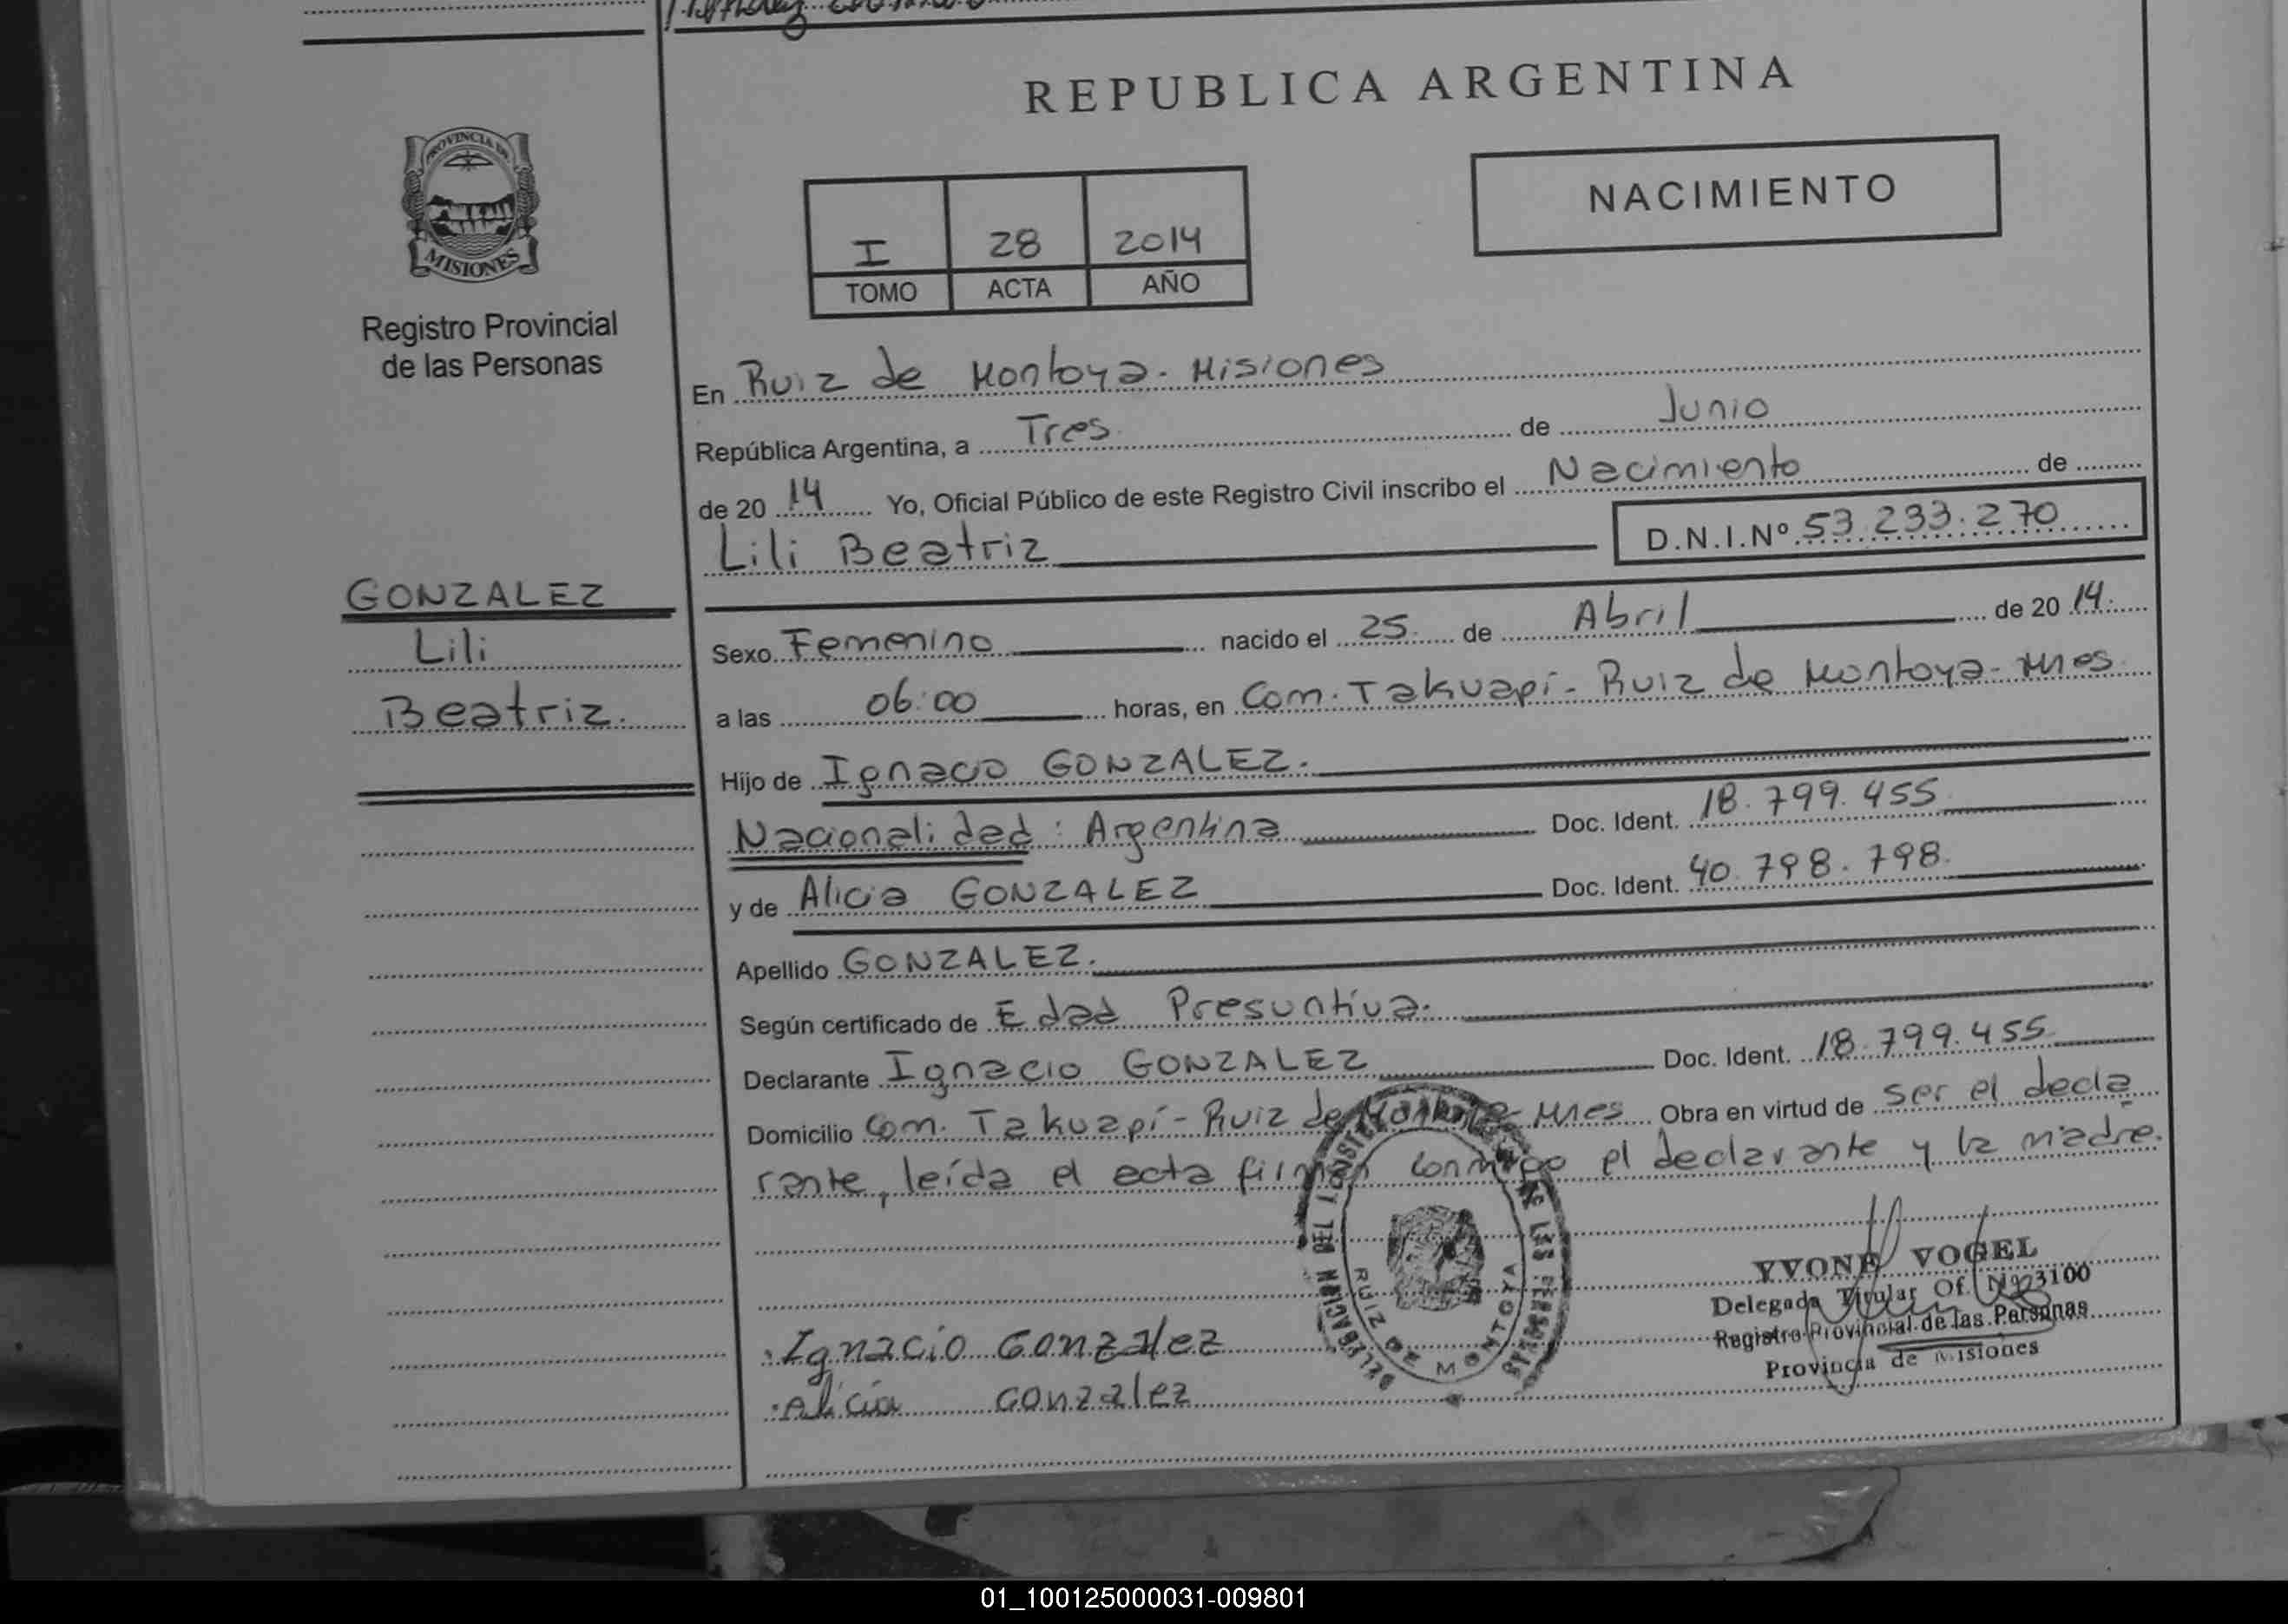 REPUBLICA ARGENTINA
PROVINCIA DE
MISIONES
Registro Provincial
de las Personas
NACIMIENTO
I 28 2014
TOMO ACTA AÑO
En Ruiz de Montoya. Misiones
República Argentina, a Tres de Junio
de 20 14 Yo, Oficial Público de este Registro Civil inscribo el Nacimiento de
Lili Beatriz D.N.I.Nº 53.233.270
GONZALEZ
Lili
Beatriz.
Sexo Femenino nacido el 25 de Abril de 20 14.
a las 06:00 horas, en Com. Takuapí - Ruiz de Montoya - Mnes
Hijo de Ignacio GONZALEZ.
Nacionalidad: Argentina Doc. Ident. 18.799.455
y de Alicia GONZALEZ Doc. Ident. 40.798.798.
Apellido GONZALEZ.
Según certificado de Edad Presuntiva.
Declarante Ignacio GONZALEZ Doc. Ident. 18.799.455
Domicilio Com. Takuapí - Ruiz de Montoya - Mnes Obra en virtud de ser el decla
rante, leída el acta firman conmigo el declarante y la madre.
RUIZ DE MONTOYA
YVONE VOGEL
Delegada Titular Of. Nº 3100
Registro Provincial de las Personas
Provincia de Misiones
Ignacio Gonzalez
Alicia Gonzalez
01_100125000031-009801